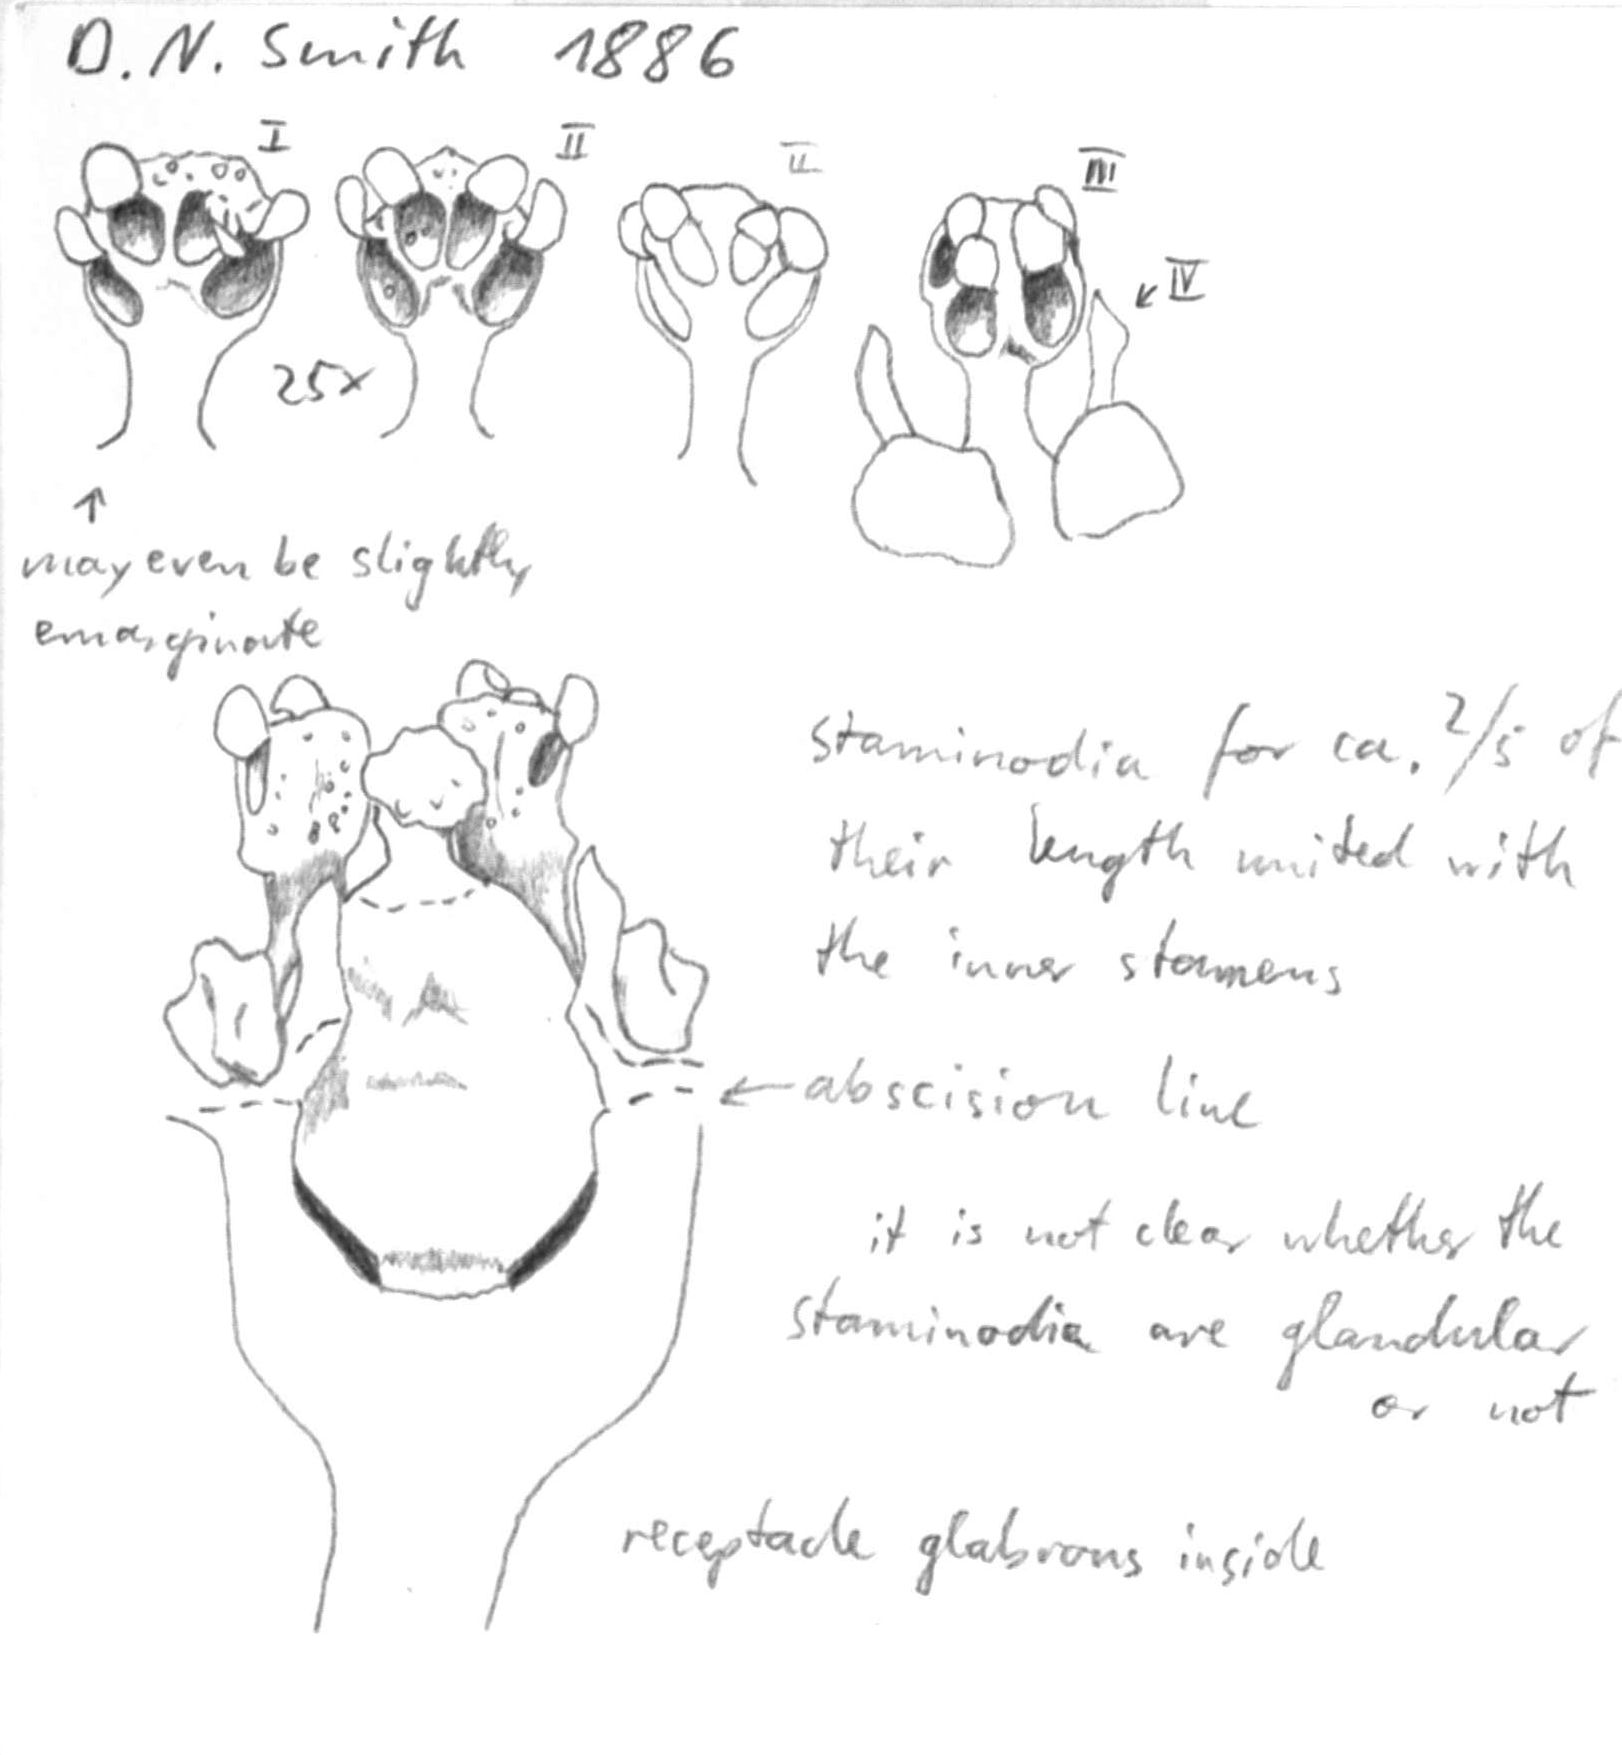 D. N. Smith 1886
I II II III
IV
25x
↑
may even be slightly
emarginate
staminodia for ca. 2/5 of
their length united with
the inner stamens
← abscision line
it is not clear whether the
staminodia are glandular
or not
receptacle glabrous inside